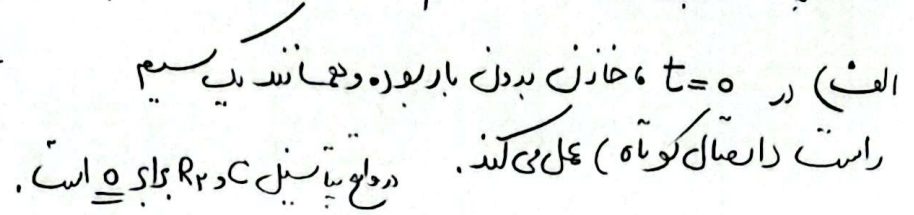 الف) در t=0 ، خازن بدون بار بوده و همانند یک سیم
راست (اتصال کوتاه) عمل می‌کند. در واقع پتانسیل C و R₂ برابر 0 است.